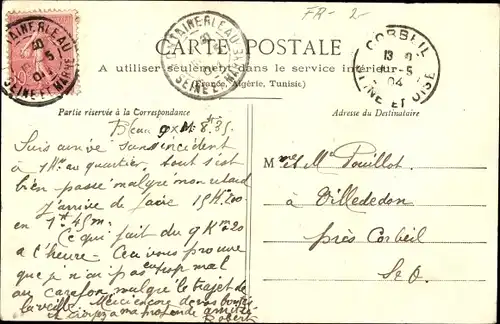 FR-2
CARTE POSTALE
A utiliser seulement dans le service intérieur
(France, Algérie, Tunisie)
CORBEIL
SEINE ET OISE
SEINE ET MARNE
Partie réservée à la Correspondance
Adresse du Destinataire
Suis arrivé sans incident
à au quartier, tout s'est
bien passé malgré mon retard
J'arrive de faire
en 1h 45m.
Ce qui fait du 9 Km 20
a l'heure. Ceci vous prouve
que je n'ai pas trop mal
au malgré le trajet de
la veille. Merci encore de vos bontés
et croyez a ma profonde amitié
Robert
Mme et M. Pouillot
à Villededon
près Corbeil
S. O.